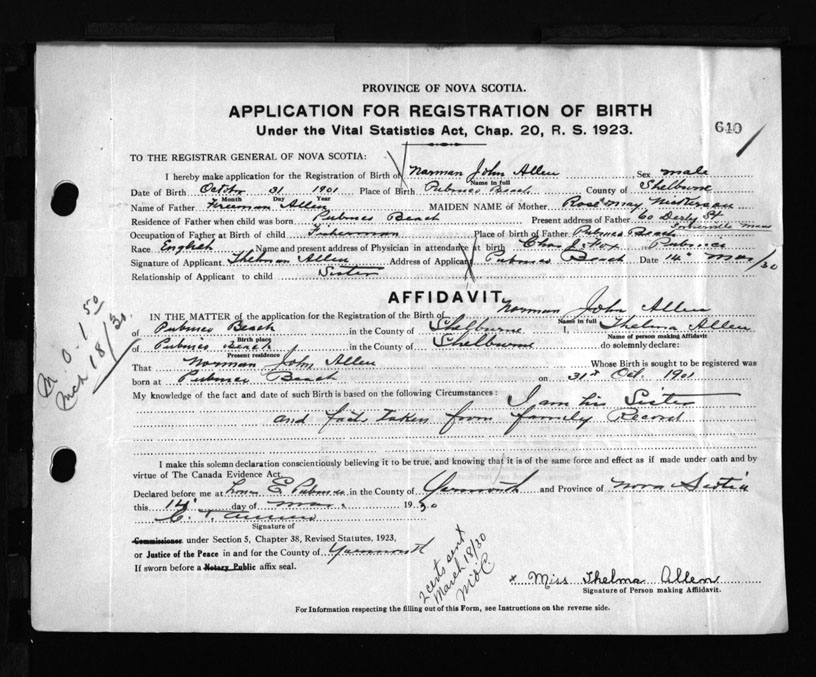 PROVINCE OF NOVA SCOTIA.
APPLICATION FOR REGISTRATION OF BIRTH
Under the Vital Statistics Act, Chap. 20, R. S. 1923.
640
TO THE REGISTRAR GENERAL OF NOVA SCOTIA:
I hereby make application for the Registration of Birth of Norman John Allen Sex male
Name in full
Date of Birth October 31 1901 Place of Birth Pubnico Beach County of Shelburne
Month Day Year
Name of Father Freeman Allen MAIDEN NAME of Mother Rose May
Residence of Father when child was born Pubnico Beach Present address of Father 60 Derby St
Somerville Mass
Occupation of Father at Birth of child Fisherman Place of birth of Father Pubnico Beach
Race English Name and present address of Physician in attendance at birth Chas J Fox Pubnico
Signature of Applicant Thelma Allen Address of Applicant Pubnico Beach Date 14" Mar/30
Relationship of Applicant to child Sister
M. O. 1.50
Mch 18/30.
AFFIDAVIT.
IN THE MATTER of the application for the Registration of the Birth of Norman John Allen
Name in full
of Pubnico Beach in the County of Shelburne I, Thelma Allen
Birth place Name of person making Affidavit
of Pubnico Beach in the County of Shelburne do solemnly declare:
Present residence
That Norman John Allen Whose Birth is sought to be registered was
born at Pubnico Beach on 31st Oct. 1901
My knowledge of the fact and date of such Birth is based on the following Circumstances: I am his Sister
and facts taken from family Record
I make this solemn declaration conscientiously believing it to be true, and knowing that it is of the same force and effect as if made under oath and by
virtue of The Canada Evidence Act.
Declared before me at Lower E. Pubnico in the County of Yarmouth and Province of Nova Scotia
this 14" day of Mar. 1930
Signature of
Commissioner under Section 5, Chapter 38, Revised Statutes, 1923,
or Justice of the Peace in and for the County of Yarmouth
If sworn before a Notary Public affix seal.
2 certs sent
March 18/30
x Miss Thelma Allen
Signature of Person making Affidavit.
For Information respecting the filling out of this Form, see Instructions on the reverse side.